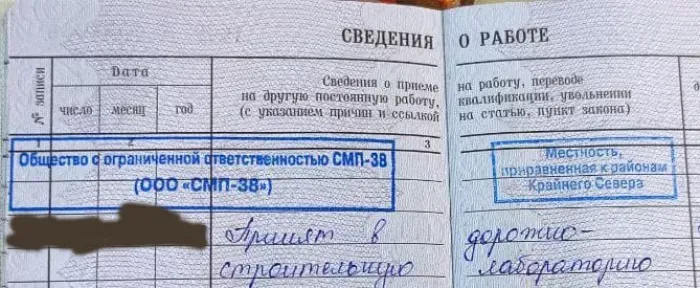 СВЕДЕНИЯ О РАБОТЕ
№ записи
Дата
число
месяц
год
Сведения о приеме на работу, переводе
на другую постоянную работу, квалификации, увольнении
(с указанием причин и ссылкой на статью, пункт закона)
1
2
3
Общество с ограниченной ответственностью СМП-38
(ООО «СМП-38»)
Местность,
приравненная к районам
Крайнего Севера
Принят в дорожно-
строительную лабораторию